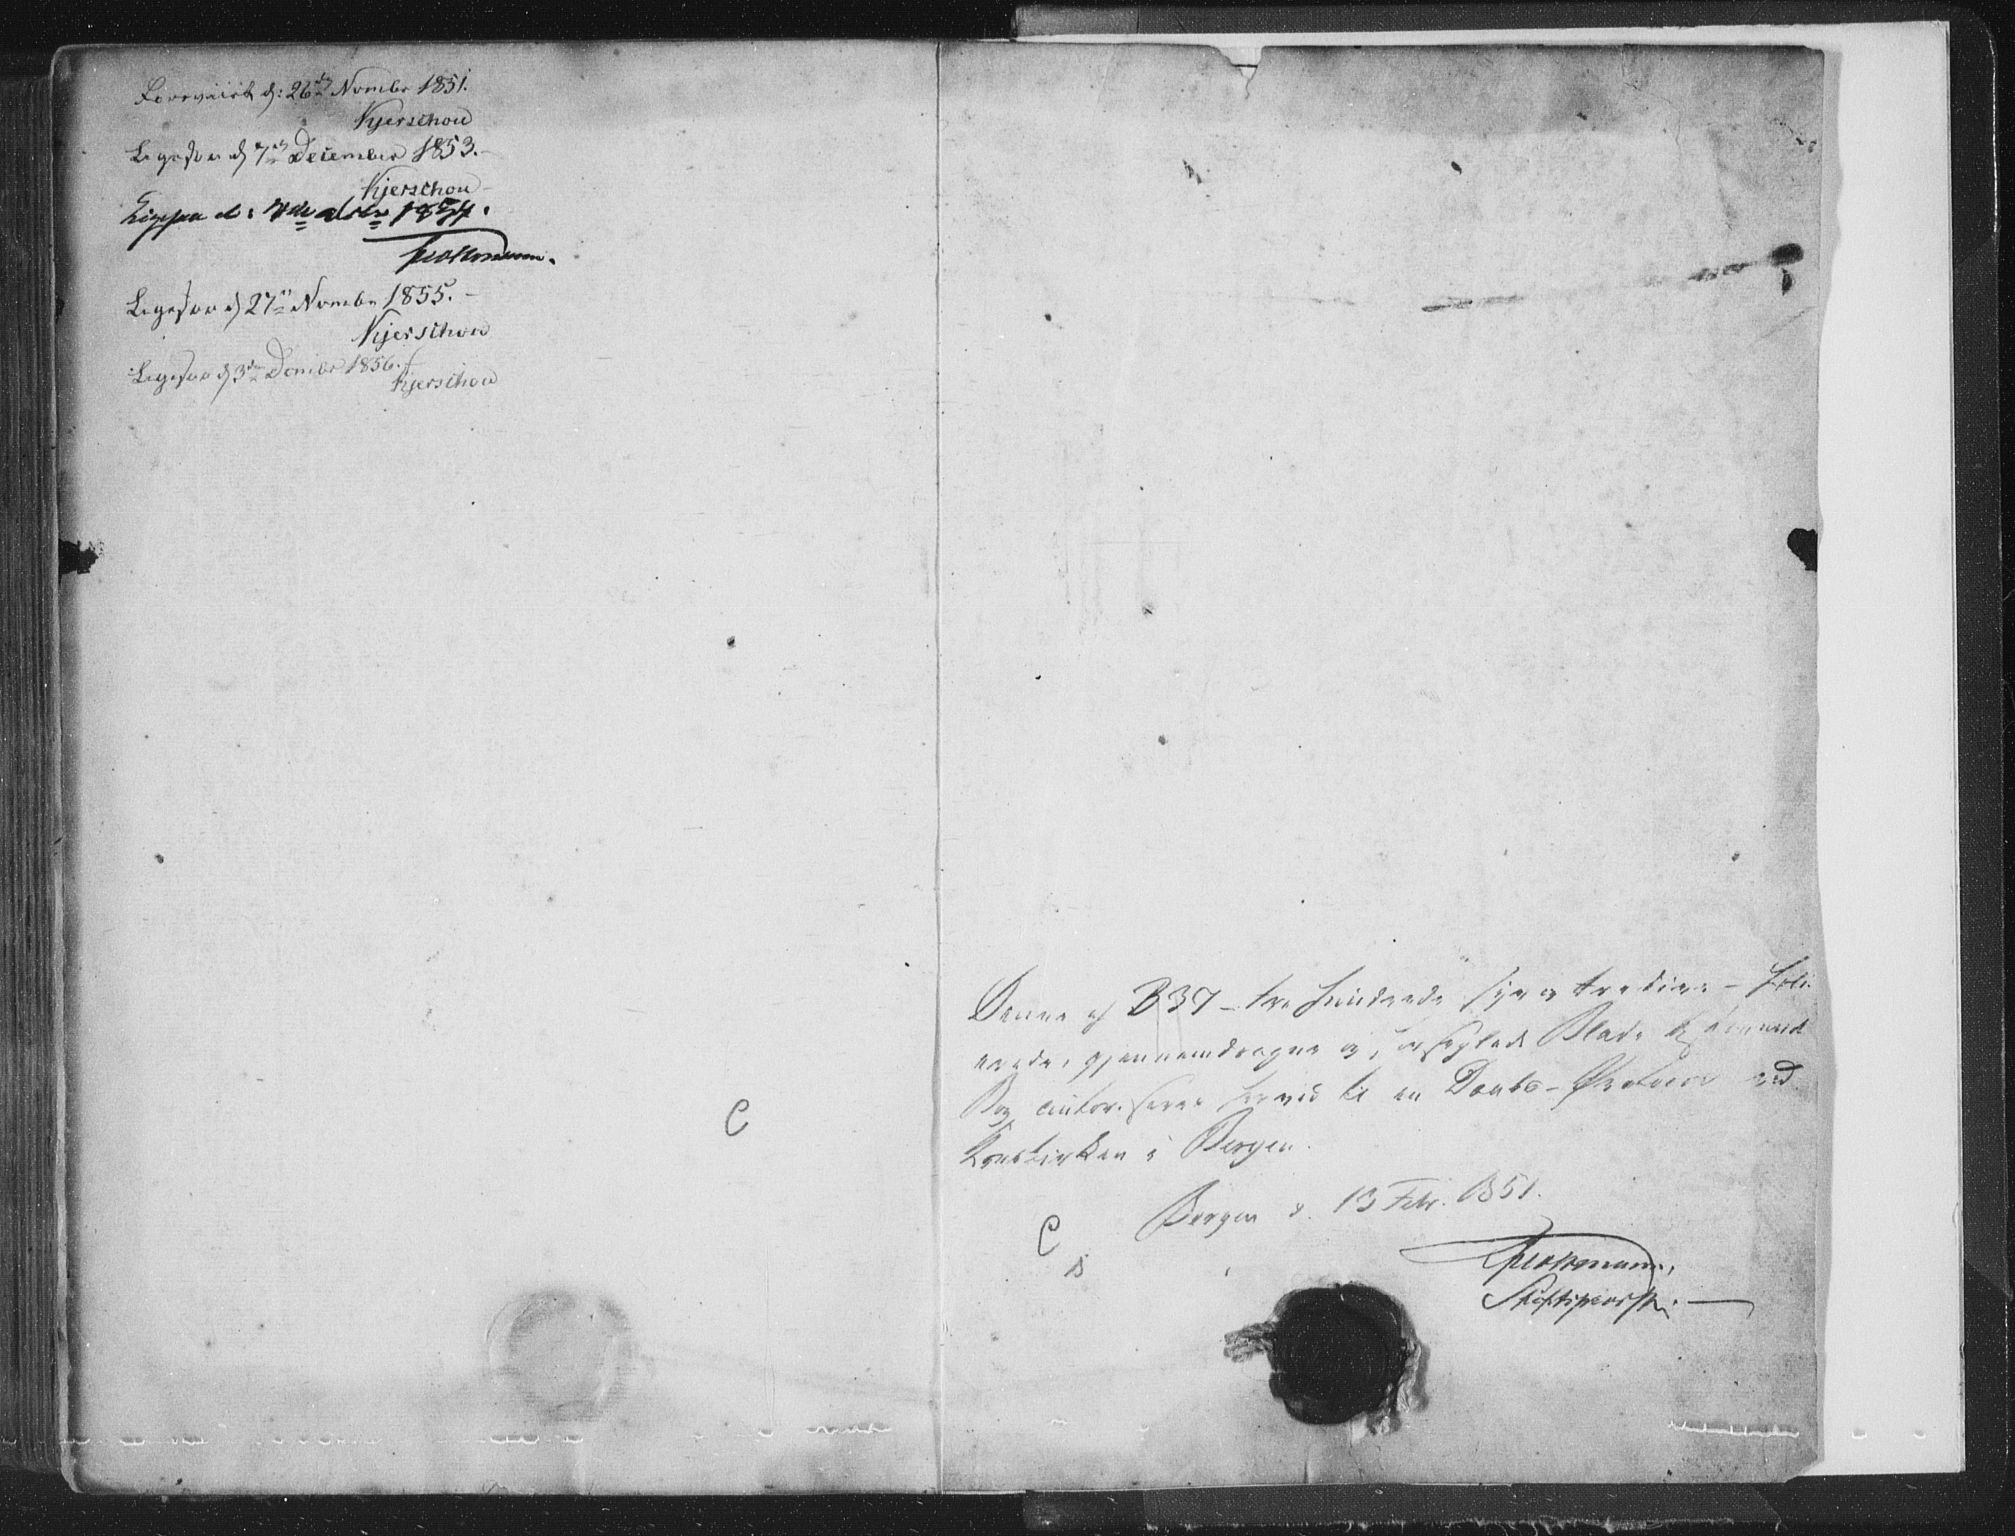 Foreviist d: 26de Novembr 1851.
Kjerschow
Ligesaa d 7de December 1853.
Kjerschow
Ligesaa d. 1854.
Ligesaa d 27de Novembr 1855.
Kjerschow
Ligesaa d 3de Decembr 1856.
Kjerschow
Denne af 337 – tre hundrede syv og tredive – foli-
erede, gjennemdragne og forseglede Blade bestaaende
Bog autoriseres herved til en Daabs-Protocol ved
Korskirken i Bergen.
Bergen d. 13 Febr. 1851.
Stiftsprovst.
C
C
B